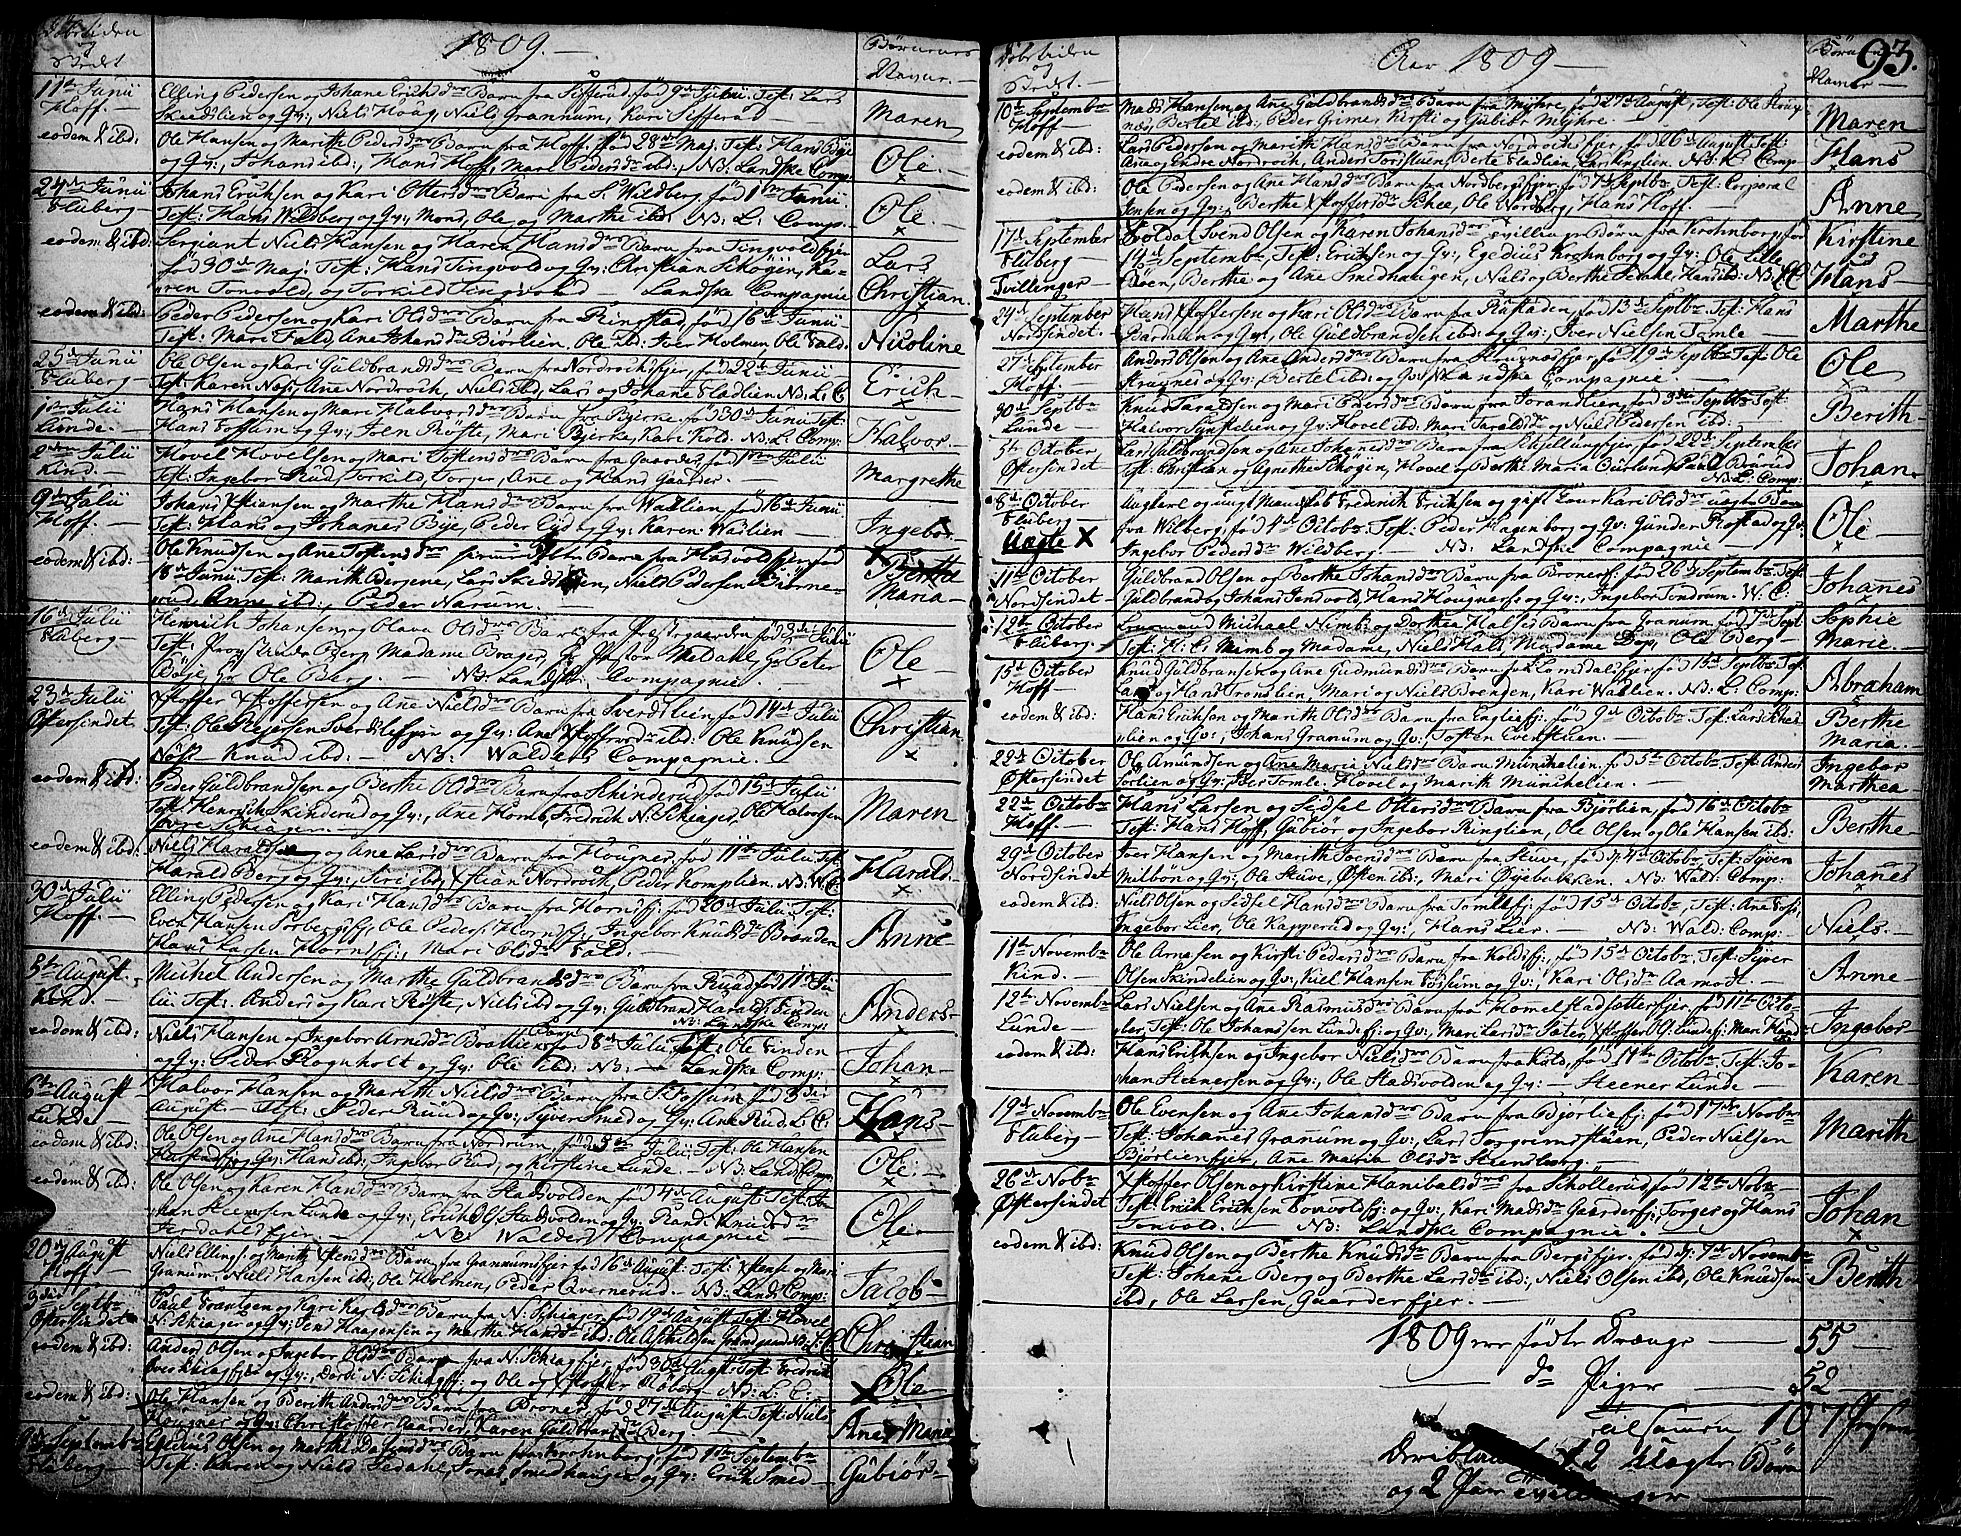 Døbetiden
og
Stedet
1809. —
Børnenes
Navne. —
11te Junii
Hoff. —
Elling Pedersen og Johane Erichsdr Barn fra Sifferud, fød 9de Junii. Test: Lars
Skiedslien og Gv:, Niels Houg, Niels Grannum, Kari Sifferud —
Maren
eodem & ibd:
Ole Hansen og Marithe Pedersdr Barn fra Hoff, fød 28de Maj. Test: Hans Bye
og Gv:, Johan ibd:, Hans Hoff, Mari Pedersdr ibd:, NB: Landske Comp:
Ole. —
24de Junii
Fluberg —
Johans Erichsen og Kari Ottersdr Barn fra S. Wildberg, fød 1ste Junii.
Test: Hans Wildberg og Gv:, Mons, Ole, og Marthe ibd. NB: L: Comp:
Ole. —
eodem & ibd:
Sergiant Niels Hansen og Karen Hansdr Barn fra Tingvoldfjer
fød 30de Maj: Test: Hans Tingvold og Gv: Christian Schøyen, Ka-
ren Tonvold, og Torkild Tingvold Landske Compagnie
Lars
Christian.
eodem & ibd:
Peder Pedersen og Kari Olsdr Barn fra Ringstad, fød 16de Junii
Test: Mari Fald, Ane Johansdr Biørlien. Ole ibd: Iver Holmen, Ole Fald.
Nicoline
25de Junii
Fluberg —
Ole Olsen og Kari Guldbrandsdr Barn fra Nordrochsfjer, fød 22de Junii
Test: Karen Næs, Ane Nordroch, Niels ibd, Lars og Johane Fladlien NB: L: C.
Erich —
1ste Julii
Lunde. —
Hans Hansen og Mari Halvorsdr Barn fra Bjerke, fød 30de Junii Test:
Hans Fossum og Gv:, Joen Røste, Mari Bjerke, Kari Kold. NB: L: Comp:
Halvor. —
2den Julii
Kind. —
Hovel Hovelsen og Mari Tostensdr Barn fra Gaarder, fød 1ste Julii
Test: Ingebor Rud, Torkild, Torger, Ane og Hans Gaarder. —
Margrethe
9de Julii
Hoff. —
Johans Xstiansen og Marthe Hansdr Barn fra Wallien, fød 16de Junii
Test: Hans og Johanes Bye, Peder Eid og Gv: Karen Wallien —
Ingebor
eodem & ibd:
Ole Knudsen og Ane Tostensdr Barn fra Hadvoldfjer, fød
18de Junii, Test: Marith Bergene, Lars Skiedslien, Niels Pedersen Biørne-
rud, Anne ibd:, Peder Narum. —
Berthe
Maria —
16de Julii
Fluberg —
Henrich Johansen og Olava Olsdr Barn fra Prestegaarden fød 2den Julii
Test: Berg, Madame Brager, Hr Pastor Meldahl, Hr Peter
Bøje, Hr Ole Berg. — NB: Landske Compagnie. —
Ole —
23de Julii
Østersindet
Xstoffer Xstoffersen og Ane Nielsdr Barn fra Sverdslien, fød 14de Julii
Test: Ole Reiersen Sverdslefjer og Gv: Ane Xstoffersdr ibd: Ole Knudsen
Nøss Knud ibd: — NB: Walders Compagnie. —
Christian.
eodem & ibd:
Peder Guldbrandsen og Berthe Olsdr Barn fra Skinderud, fød 15de Julii
Test: Henrich Skinderud og Gv:, Ane Homb, Fredrich N: Schiager, Ole Halvorsen
Schiager. —
Maren
eodem & ibd:
Niels Haraldsen og Ane Larsdr Barn fra Hougner, fød 11te Julii Test:
Harald Berg og Gv:, Siri ibd, Xstian Nordroch, Peder Komplien, NB: W: C:
Harald. —
30de Julii
Hoff. —
Elling Pedersen og Kari Hansdr Barn fra Hornsfj: fød 20de Julii. Test:
Even Hansen Sørbergsfj, Ole Peders: Hornsfj:, Ingebor Knudsdr Brænden
Hans Larsen Hornsfj:, Mari Olsdr Fald. —
Anne
5te August
Kind. —
Michel Andersen og Marthe Guldbrandsdr Barn fra Ruud, fød 11te Ju-
lii Test: Anders og Kari Røste, Niels ibd og Gv: Guldbrand Haralds: Finden
NB: Landske Comp:
Anders —
eodem & ibd:
Niels Hansen og Ingebor Arnesdr Barn Brattlien fød 8de Julii, Test: Ole Finden
og Gv: Peder Rognholt og Gv: Ole ibd: NB: — Landske Comp:
Johan —
6te August
Lunde —
Halvor Hansen og Marith Nielsdr Barn fra S: Fossum fød 3die
August — Test: Peder Ruud og Gv:, Syver Smed og Gv: Ane Rud. L: C:
Hans —
eodem & ibd:
Ole Olsen og Ane Hansdr Barn fra Nordrum, fød 5te Julii Test: Ole Hansen
og Gv: Hans ibd:, Ingebor Rud, og Kirstine Lunde. — NB: Landsk Com:
Ole. —
eodem & ibd:
Ole Olsen og Karen Hansdr Barn fra Stadsvolden fød 4de August. Test: Jo-
han Steenersen Lunde og Gv:, Erich Ols: Stadsvolden og Gv: Randi Knudsdr
Fierdahlsfjer. — NB: Walders Compagnie —
Ole —
20de August
Hoff —
Niels Ellings: og Marith Xstensdr Barn fra Grannumsfjer fød 16de August. Test: Xstense og Mari
Granum, Niels Hansen ibd:, Ole Holmen, Peder Qvernerud. — NB: Lands: Comp:
Jacob —
3die Septbr
Østersindet
Paul Frantzen og Kari Larsdr Barn fra N: Schiager, fød 19de August Test: Hovel
N: Schiager og Gv:, Svend Haagensen og Marthe Hansdr ibd: Ole Askildsen NB: L: C:
Christian
eodem & ibd:
Anders Olsen og Ingebor Olsdr Barn fra N: Schiagfjer, fød 30de August. Test: Fredrich
og Gv:, Dordi N: Schiagff:, og Ole og Xstoffer Røberg. NB: L: C: —
Ole —
eodem & ibd:
Ole Hansen og Berith Andersdr Barn fra Broner, fød 27de August. Test: Niels
Hougner og Gv: Christoffer Gaarder, Karen Guldbrandsdr Berg —
Ane Marie
9de Septembr
Fluberg —
Egidius Olsen og Marthe Barn fra Krohnborg, fød 1ste Septembr
Test: Karen og Niels Sedahl, Jonas Smedhaugen og Gv: Erich Smed —
Gubiør —
Døbetiden
og
Stedet. —
Aar 1809 —
Børnenes
Navne. —
93.
10de Septembr
Hoff —
Mads Hansen og Ane Guldbrandsdr Barn fra Myhre, fød 27de August, Test: Ole Krug-
næs, Bertel ibd:, Peder Grime, Kirsti og Gubiør Myhre. —
Maren
eodem & ibd:
Lars Pedersen og Marith Hansdr Barn fra Nordrochsfjer, fød 26de August. Test:
Asia og Endre Nordroch, Anders Tordstuen, Berte Fladlien Lars Englien. NB: L: Comp.
Hans
eodem & ibd:
Ole Pedersen og Ane Hansdr Barn fra Nordbergsfjer, fød 7de Septbr, Test: Corporal
Jensen og Gv:, Berthe Xstoffersdr Schee, Ole Nordberg, Hans Hoff. —
Anne
17de September
Fluberg —
Tvillinger —
Soldat Svend Olsen og Karen Johansdr Tvillinger Børn fra Krohnborg, fød
19de Septembr, Test: Erichsen og Gv:, Egedius Krohnborg og Gv: Ole Lille
Bøen, Berthe og Ane Smedhaugen, Niels og Berthe Hans ibd: NB: L: C
Kirstine
og
Hans —
24de September
Nordsindet.
Hans Xstoffersen og Kari Olsdr Barn fra Rustaden, fød 13de Septbr. Test: Hans
Bardalen og Gv:, Ole Guldbrandsen ibd: og Gv:, Iver Nielsen Tomle. —
Marthe
27de September
Hoff —
Anders Olsen og Ane Andersdr Barn fra Krugnæsfjer, fød 19de Septbr Test: Ole
Krugnes og Gv: Bertel ibd: og Gv: NB: Landske Compagnie. —
Ole
30de Septbr
Lunde —
Knud Taraldsen og Mari Pedersdr Barn fra Jorandlien, fød 3die Septbr Test:
Halvor Synstelien og Gv: Hovel ibd: Mari Taraldsdr og Niels Pedersen ibd: —
Berith —
5te October
Østersindet
Lars Guldbrandsen og Ane Johansdr Barn fra Schjellungfjer, fød 20de September
Test: Christian og Agnethe Schøgen, Hovel og Berthe Maria Ourlund, Paul Baarud
NB: L: Comp:
Johan —
8de October
Fluberg —
Uægte X
Ungkarl og ungt Mandskab Frederich Erichsen og gift Kone Kari Olsdr uægte Barn
fra Wilberg, fød 4de Octobr. Test: Peder Hagenborg og Gv: Gunder Rostad og Gv:
Ingebor Pedersdr Wildberg. — NB: Landske Compagnie —
Ole —
11te October
Nordsindet —
Guldbrand Olsen og Berthe Johansdr Barn fra Bronerfj: fød 26de Septembr. Test:
Guldbrand og Johans Jendvold, Hans Hougners og Gv:, Ingebor Tondrum. W: C:
Johanes
12te October
Fluberg —
Michael Nimb og Dorthea Hals Barn fra Granum, fød 7de Sept
Test: H: C: Nimb og Madame, Niels Hals, Madame Dop, Ole Berg. —
Sophie
Marie. —
15de October
Hoff —
Knud Guldbransen og Ane Gudmundsdr Barn fra Lomsdalsfjer, fød 15de Septbr Test:
Lars og Hans Tronslien, Mari og Niels Brenden, Kari Wallien. NB: L: Comp:
Abraham
eodem & ibd:
Hans Erichsen og Marith Olsdr Barn fra Engliefj: fød 9de Octobr. Test: Lars Skies
slien og Gv:, Johans Granum og Gv:, Tosten Evenstuen. —
Berthe
Maria. —
22de October
Østersindet
Ole Amundsen og Ane Marie Nielsdr Barn Munchelien, fød 5te Octobr. Test: Anders
Sørlien og Gv: Per Tomle, Hovel og Marith Munchelien. —
Ingebor
Marthea
22de Octobr
Hoff. —
Hans Larsen og Sidsel Ottersdr Barn fra Bjørlien, fød 16de Octobr
Test: Hans Hoff, Gubiør og Ingebor Ringlien, Ole Olsen og Ole Hansen ibd:
Berthe —
29de October
Nordsindet
Iver Hansen og Marith Iversdr Barn fra Stuve, fød 4de Octobr Test: Syver
Milbon og Gv:, Ole Stuve, Østen ibd:, Mari Øyebakken. NB: Wald: Comp:
Johanes
eodem & ibd:
Niels Olsen og Sidsel Hansdr Barn fra Tomlefj: fød 15de Octobr, Test: Ane
Ingebor Lier, Ole Kapperud og Gv:, Hans Lier. — NB: Wald: Comp:
Niels. —
11te Novembr
Kind. —
Ole Arnesen og Kirsti Pedersdr Barn fra Koldsfj:, fød 15de Octobr. Test: Syver
Olsen Skindelien og Gv:, Kiel Hansen Fossum og Gv:, Kari Olsdr Aamodt. —
Anne —
12te Novembr
Lunde —
Lars Nielsen og Ane Rasmusdr Barn fra Hommelstadsætterfjer, fød 11te Octo-
ber, Test: Ole Johansen Lundefj: og Gv:, Mari Larsdr Sæter, Xstoffer O: Lundefj: Mari Hansdr
Ingebor
eodem & ibd:
Hans Erichsen og Ingebor Nielsdr Barn fra Kold, fød 11te Octobr. Test: Jo-
han Steenersen og Gv:, Ole Stadsvolden og Gv: — Steener Lunde —
Karen —
19de Novembr
Fluberg —
Ole Evensen og Ane Johansdr Barn fra Bjørliefj: fød 17de Novbr
Test: Johanes Granum og Gv:, Lars Torgrimstuen, Peder Nielsen
Bjørlienfjer, Ane Maria Olsdr Steensberg. —
Marith
26de Nobr
Østersindet
Xstoffer Olsen og Kirstine Hanibalsdr fra Schollerud fød 12te Nobr
Test: Erich Erichsen Tonvoldfj: og Gv:, Kari Madsdr Gaarderfj:, Torger og Hans
Tonvold. — NB: Landske Compagnie. —
Johan
eodem & ibd:
Knud Olsen og Berthe Knudsdr Barn fra Bergsfjer, fød d: 7de Novembr
Test: Johane Berg og Berthe Larsdr ibd:, Niels Olsen ibd, Ole Knudsen
ibd, Ole Larsen, Gaarderfjer. —
Berith —
1809 ere fødte Drænge — 55 —
do Piger — 52 —
tilsamen 107
Deriblandt 2 Uægte Børn
og 2 Par Tvillinger —